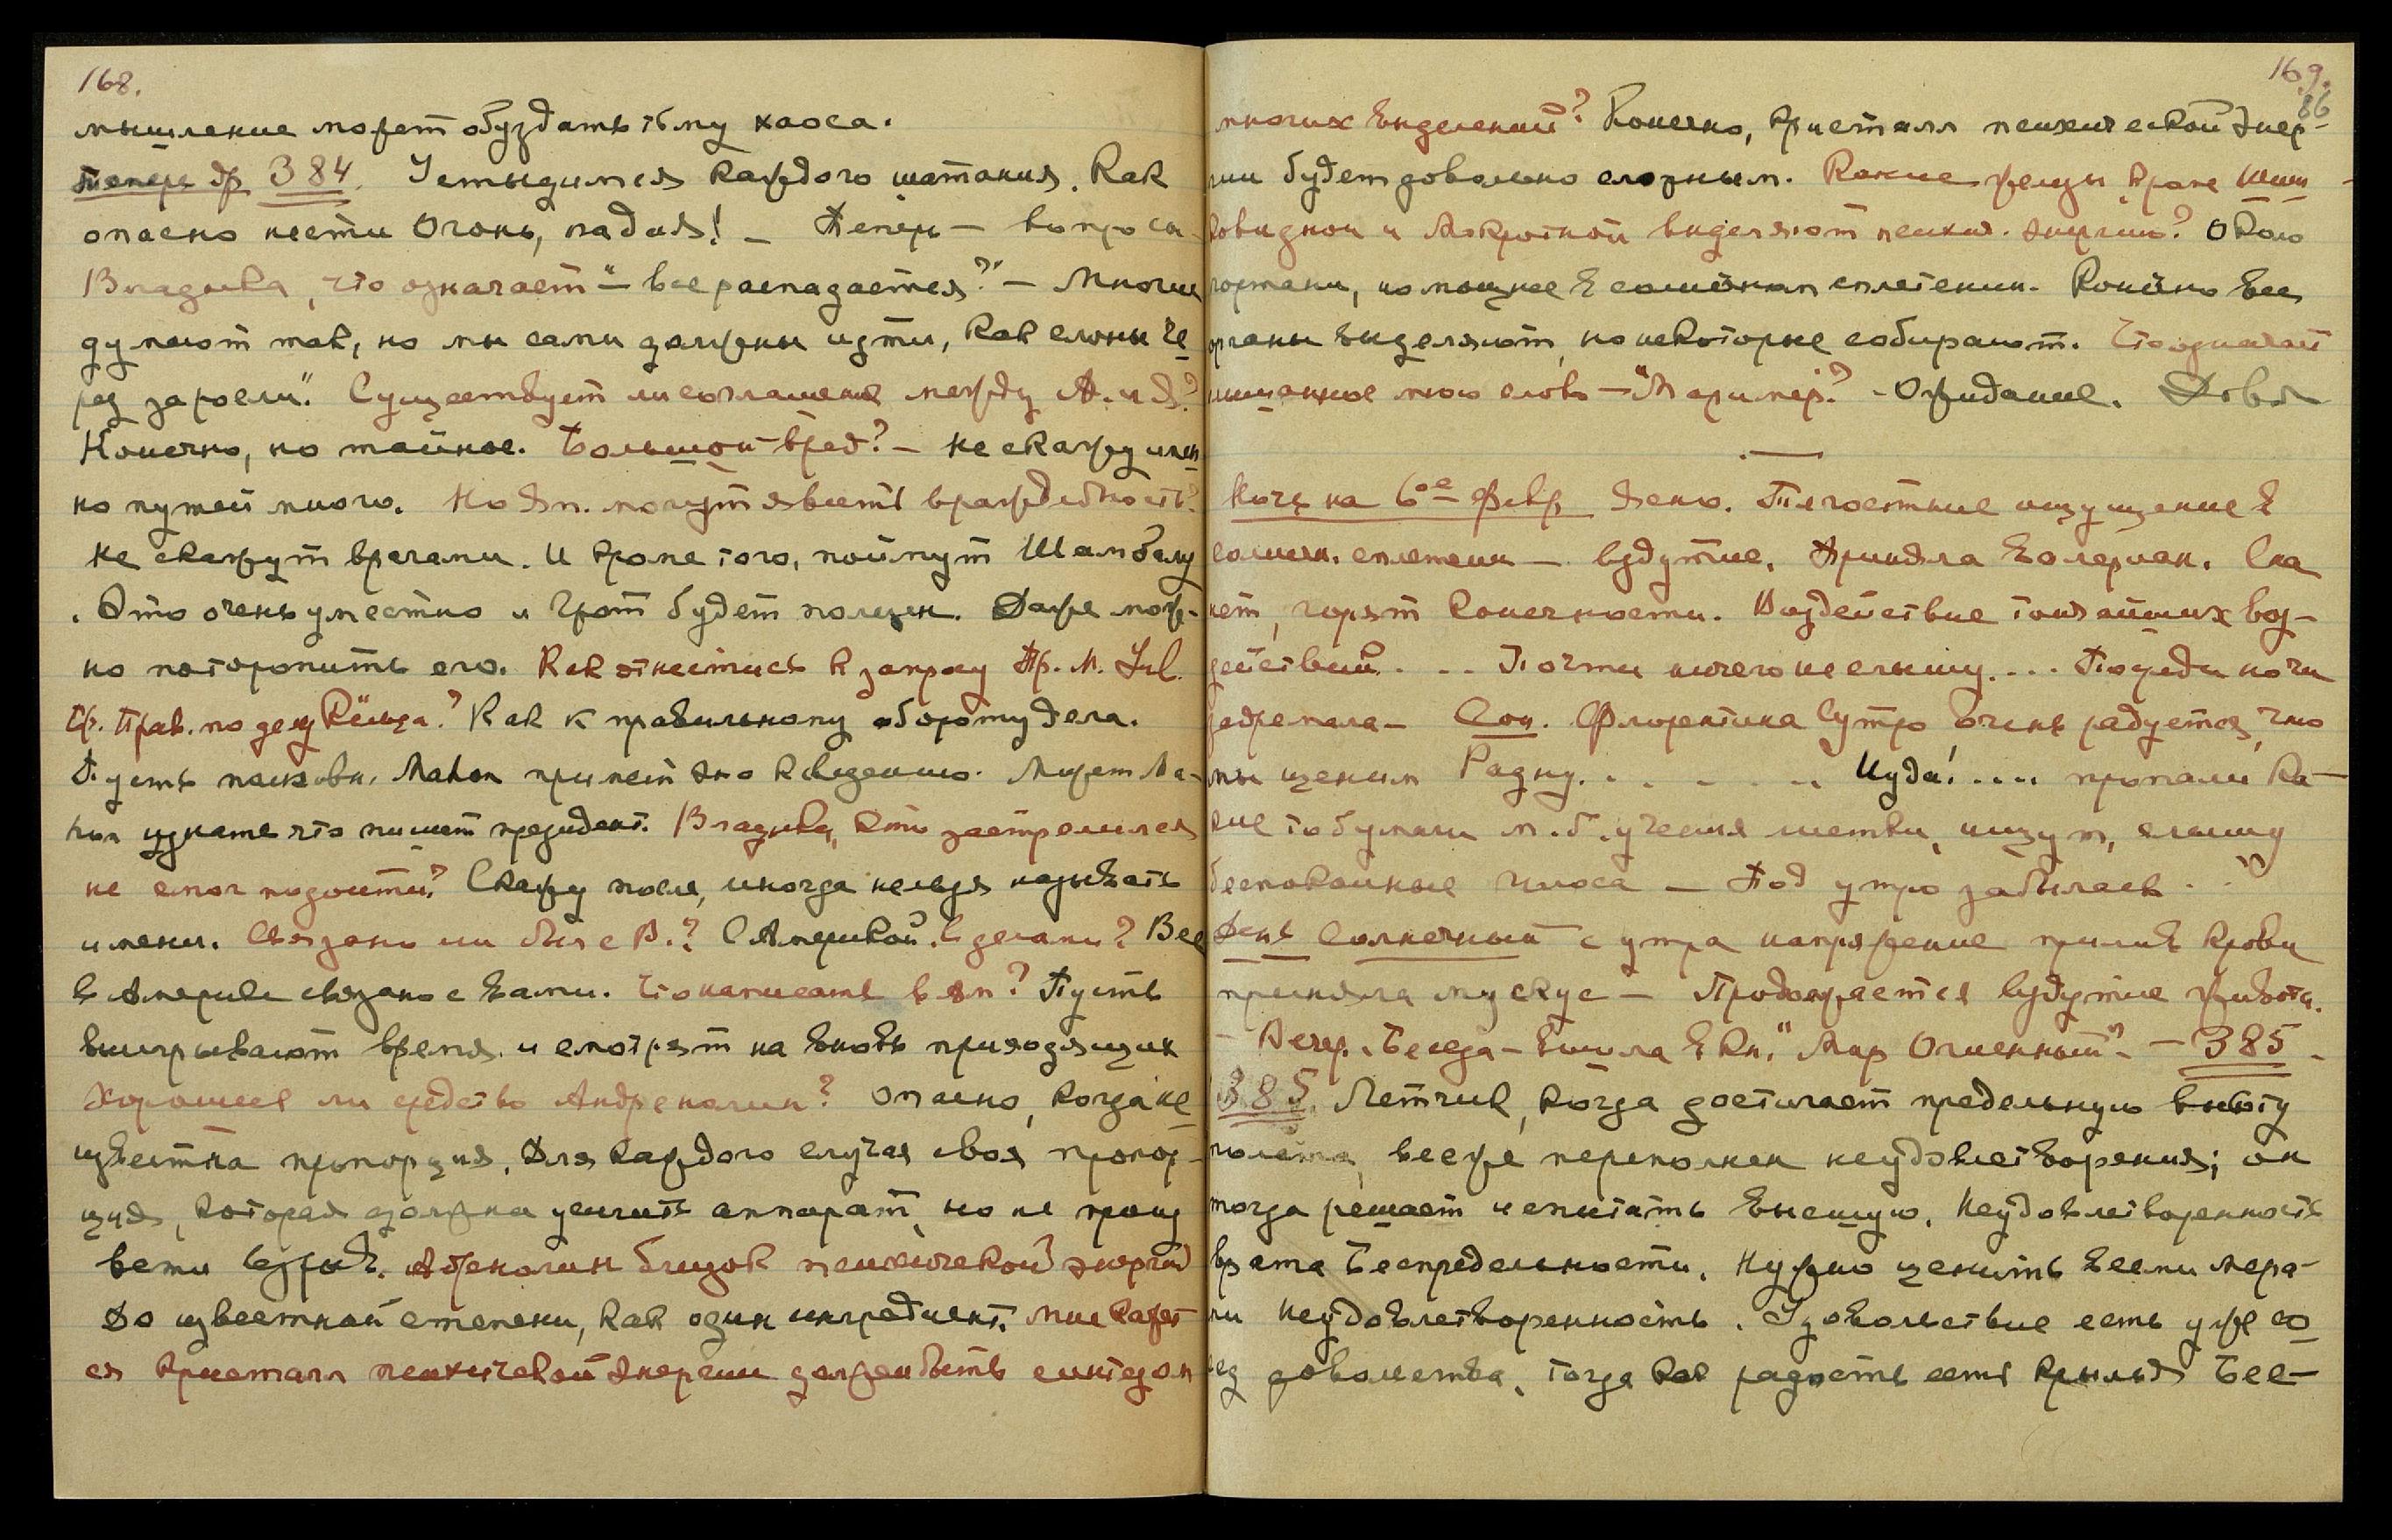 168.
мышление может обуздать тьму хаоса.
Теперь др. 384. Устыдимся каждого шатания. Как
опасно нести Огонь, падая! — Теперь — вопросы
Владыка, что означает — "все распадается?" — Многие
думают так, но мы сами должны идти, как слоны че-
рез заросли". Существует ли соглашение между А. и Я.?
Конечно, но тайное. Большой вред? — Не скажу имен
но путей много. Но Яп. могут явить враждебность?
Не скажут врагами. И кроме того, поймут Шамбалу
. Это очень уместно и будет полезен. Даже мож-
но поторопить его. Как отнестись к запросу Пр. М.
Пр. Прав. по делу Кёльца? Как к правильному обороту дела.
Пусть полковн. Махон примет это к сведению. Может Ма-
хон узнать что пишет президент. Владыка, кто застрелился
не смог подойти? Скажу после, иногда нельзя называть
имени. Связано ли был с В.? С Америкой. С делами? Все
в Америке связано с Вами. Что написать в Яп? Пусть
выигрывают время и смотрят на вновь приходящих
Хорошее ли средство Андреналин? Опасно, когда не
известна пропорция. Для каждого случая своя пропор-
ция, которая должна усилить аппарат, но не произ
вести взрыв. Адреналин близок психической энергии
до известной степени, как один ингредиент. Мне кажет
ся кристалл психической энергии должен быть синтезом
169.
86
многих выделений? Конечно, кристалл психической энер-
гии будет довольно сложным. Какие железы кроме Щит-
ковидной и Мокротной выделяют психич. энергию? Около
гортани, но мощнее в солнечном сплетении. Конечно все
органы выделяют, но некоторые собирают. Что означает
слышанное мною слово — "Маример?" - Ожидание. Довол
Ночь на 6ое Февр. Ясно. Тягостные ощущение в
солнечн. сплетении — вздутие. Приняла Валериан. Сна
нет, горят конечности. Воздействие тончайших воз-
действий. . . Почти ничего не слышу. . . . Посреди ночи
задремала — Сон. Флорентина Сутро очень радуется, что
мы ценим Радну. . . . . . . Иуда! . . . . пропали ка-
кие то бумаги м. б. учения листки, ищут, слышу
беспокойные голоса — Под утро забылась . .
День Солнечный с утра напряжение прилив крови
приняла мускус — Продолжается вздутие живота.
— Вечер. Беседа — Вышла в кн. "Мир Огненный". — 385 —
385. Летчик, когда достигает предельную высоту
полета, все же переполнен неудовлетворения; он
тогда решает испытать высшую. Неудовлетворенность
врата Беспредельности. Нужно ценить всеми мера-
ми неудовлетворенность. Удовольствие есть уже со
сед довольства, тогда как радость есть крылья Бес-